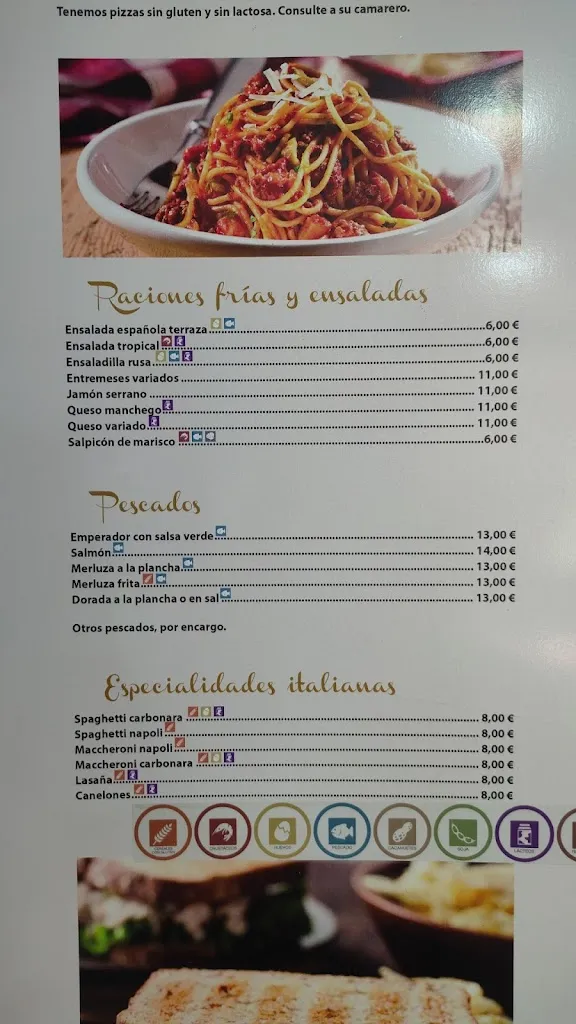 Tenemos pizzas sin gluten y sin lactosa. Consulte a su camarero.
Raciones frías y ensaladas
Ensalada española terraza 6,00 €
Ensalada tropical 6,00 €
Ensaladilla rusa 6,00 €
Entremeses variados 11,00 €
Jamón serrano 11,00 €
Queso manchego 11,00 €
Queso variado 11,00 €
Salpicón de marisco 6,00 €
Pescados
Emperador con salsa verde 13,00 €
Salmón 14,00 €
Merluza a la plancha 13,00 €
Merluza frita 13,00 €
Dorada a la plancha o en sal 13,00 €
Otros pescados, por encargo.
Especialidades italianas
Spaghetti carbonara 8,00 €
Spaghetti napoli 8,00 €
Maccheroni napoli 8,00 €
Maccheroni carbonara 8,00 €
Lasaña 8,00 €
Canelones 8,00 €
CRUSTÁCEOS HUEVOS PESCADO CACAHUETES SOJA LÁCTEOS